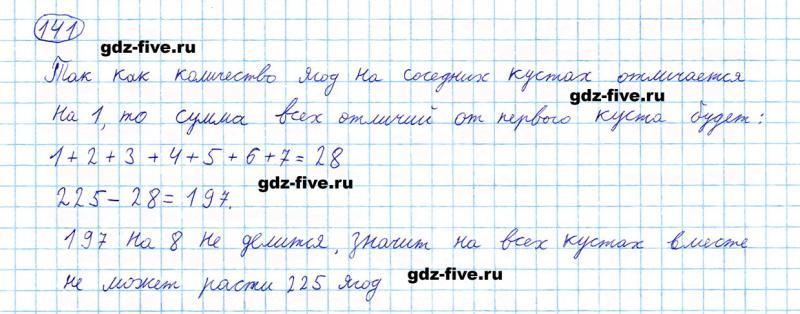 141
gdz-five.ru
Так как количество ягод на соседних кустах отличается
gdz-five.ru
на 1, то сумма всех отличий от первого куста будет:
1+2+3+4+5+6+7=28
gdz-five.ru
225-28=197.
197 на 8 не делится, значит на всех кустах вместе
не может расти 225 ягод
gdz-five.ru